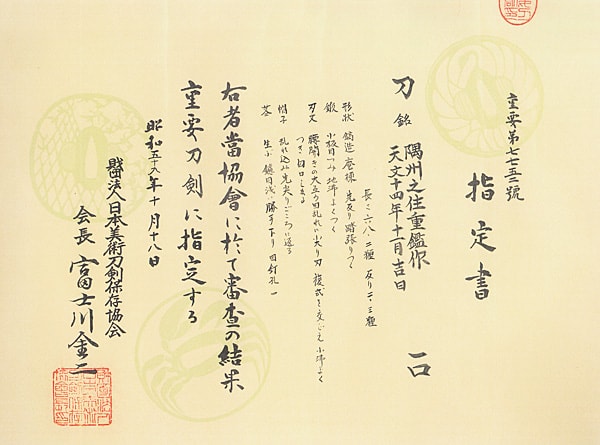 重要第七七五二號
指定書
刀 銘 隅州之住重鑑作
天文十四年十一月吉日 一口
長さ六八・二糎 反り二・三糎
形状 鎬造 庵棟 先反り踏張りつく
鍛 小板目つみ 地沸よくつく
刃文 腰開きの大互の目乱れ 小沸よく
つき 匂口しまる
帽子 乱れ込み先尖りごころに返る
茎 生ふ 鑢目浅い勝手下り 目釘孔一
右者當協會に於て審査の結果
重要刀剣に指定する
昭和五十八年十月十八日
財団法人日本美術刀剣保存協会
会長 富士川金二